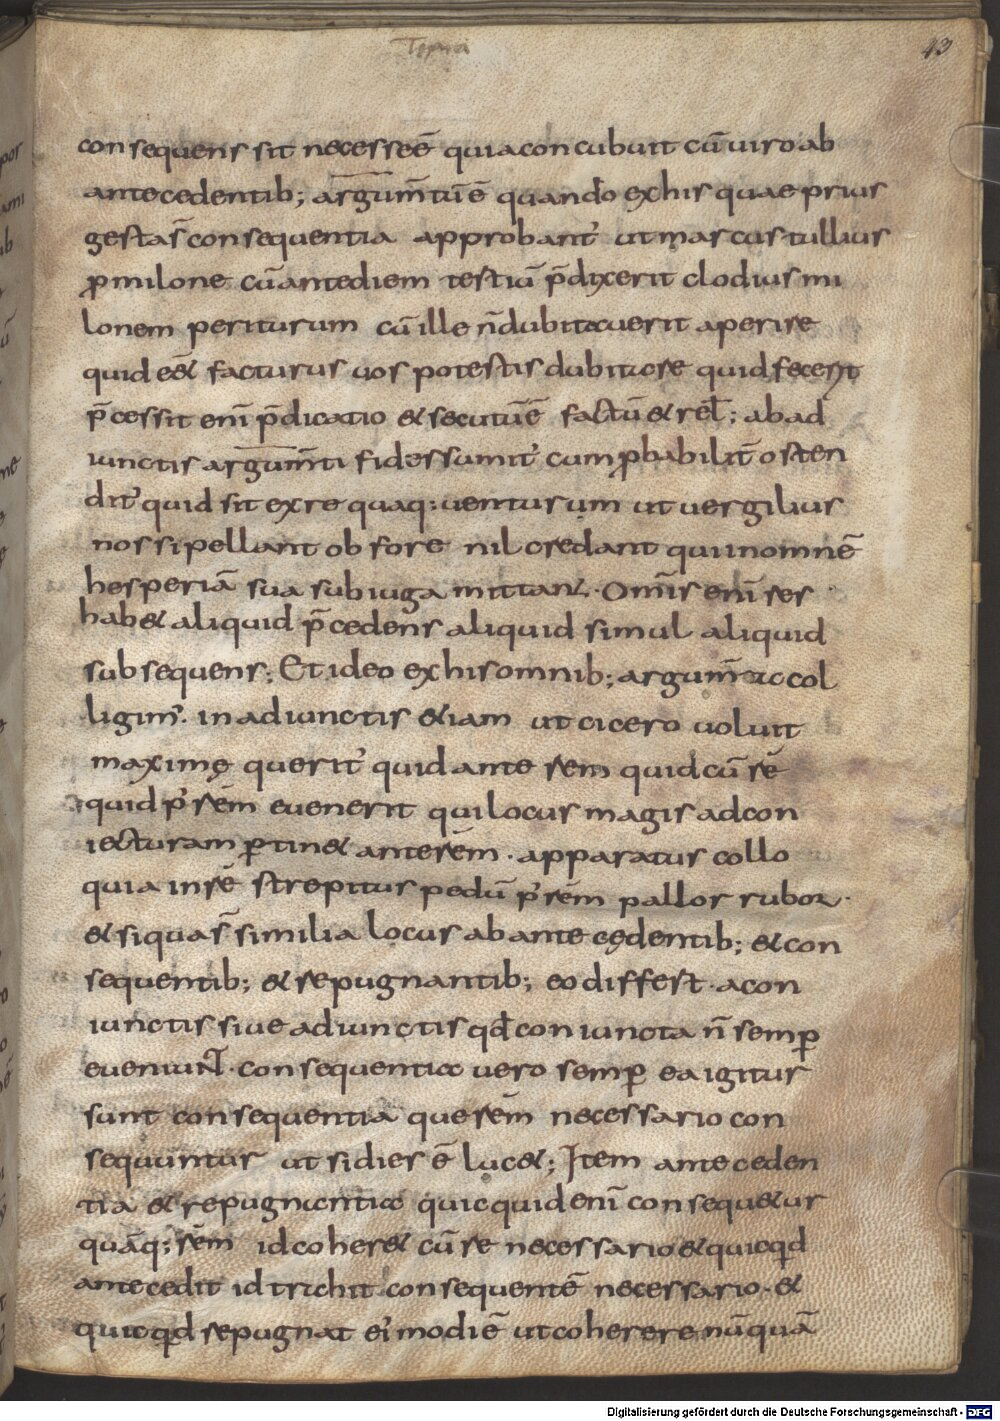 Topica
43
consequens sit necesseē quia concubuit cū uiro ab
antecedentib; argum̄tū ē quando ex his quae prius
gesta s̄ consequentia approbant᷒ ut marcus tullius
ꝓmilone cū ante diem testiū p̄dixerit clodius mi
lonem periturum cū ille n̄ dubitauerit aperire
quid eē& facturus uos potestis dubitare quid fecerit
p̄cessit eni᷒ p̄dicatio & secutū ē factū & rel̄; ab ad
iunctis argum̄ti fides sumit᷒ cum ꝓbabilit̄ osten
dit᷒ quid sit ex re quaq: uenturum ut uergilius
nos si pellant ob fore nil credant quin omnē
hesperiā sua sub iuga mittant. Om̄is eni᷒ res
hab& aliquid p̄cedens aliquid simul aliquid
subsequens; Et ideo ex his omnib; argum̄ta col
ligim᷒. in adiunctis &iam ut cicero uoluit
maximę querit᷒ quid ante rem quid cū rē
quid p᷒ rem euenerit qui locus magis ad con
iecturam ꝑtin& ante rem. apparatus collo
quia in rē strepitus pedū p᷒ rem pallor rubor.
& si qua s̄ similia locus ab antecędentib; & con
sequentib; & repugnantib; eo differt. a con
iunctis siue adiunctis qđ coniuncta n̄ semꝑ
eueniunt. consequentia uero semꝑ ea igitur
sunt consequentia que rem necessario con
sequuntur ut si dies ē luc&; Item anteceden
tia & repugnantia quicquid eni᷒ consequ&ur
quāq; rem id coher& cū re necessario & quicqd
antecedit id trahit consequentē necessario. &
quicqd repugnat ei᷒modi ē ut coherere nūquā